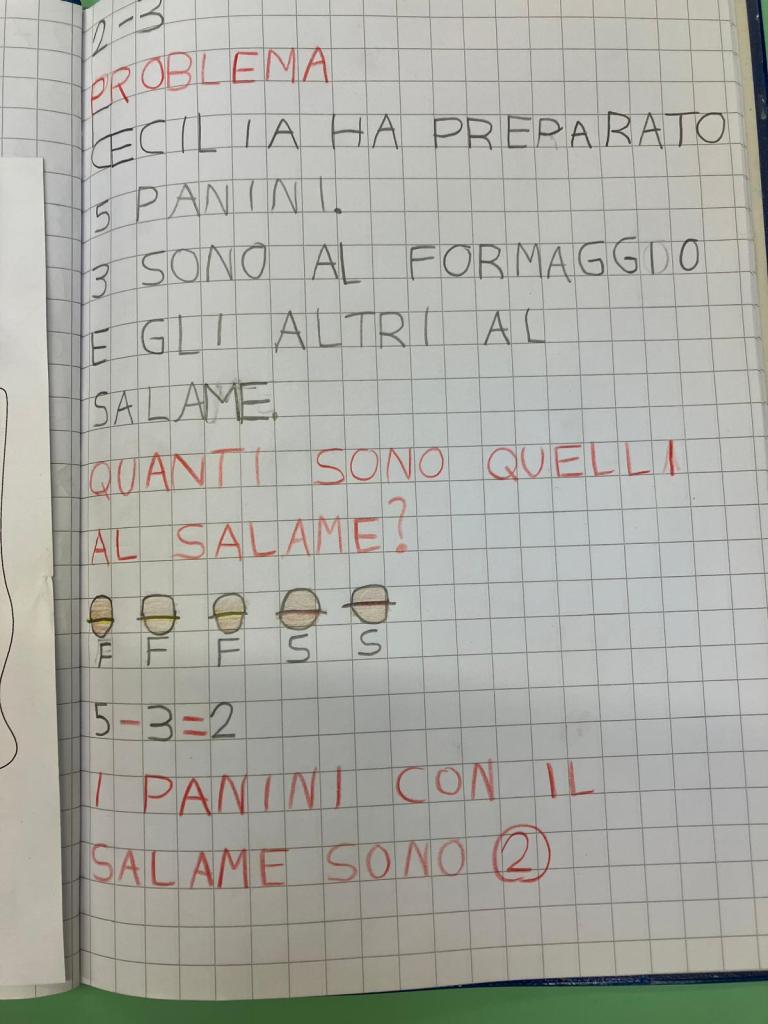 2-3
PROBLEMA
CECILIA HA PREPARATO
5 PANINI.
3 SONO AL FORMAGGIO
E GLI ALTRI AL
SALAME.
QUANTI SONO QUELLI
AL SALAME?
F F F S S
5-3=2
I PANINI CON IL
SALAME SONO 2